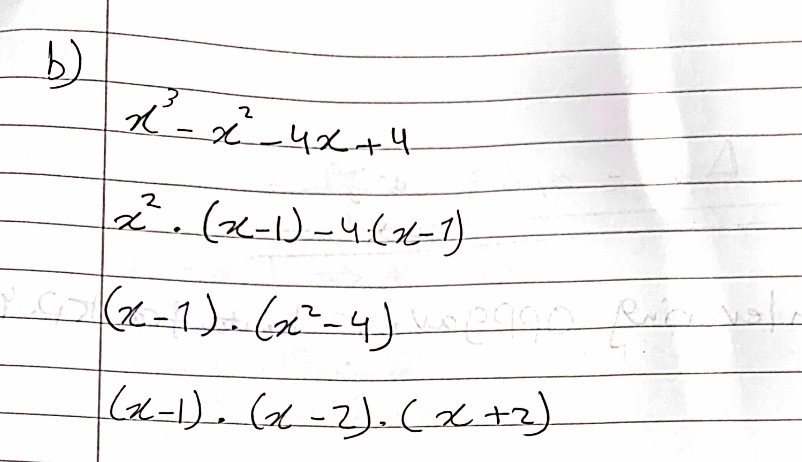 b)
x³ - x² - 4x + 4
x² · (x-1) - 4·(x-1)
(x-1) · (x²-4)
(x-1) · (x-2) · (x+2)